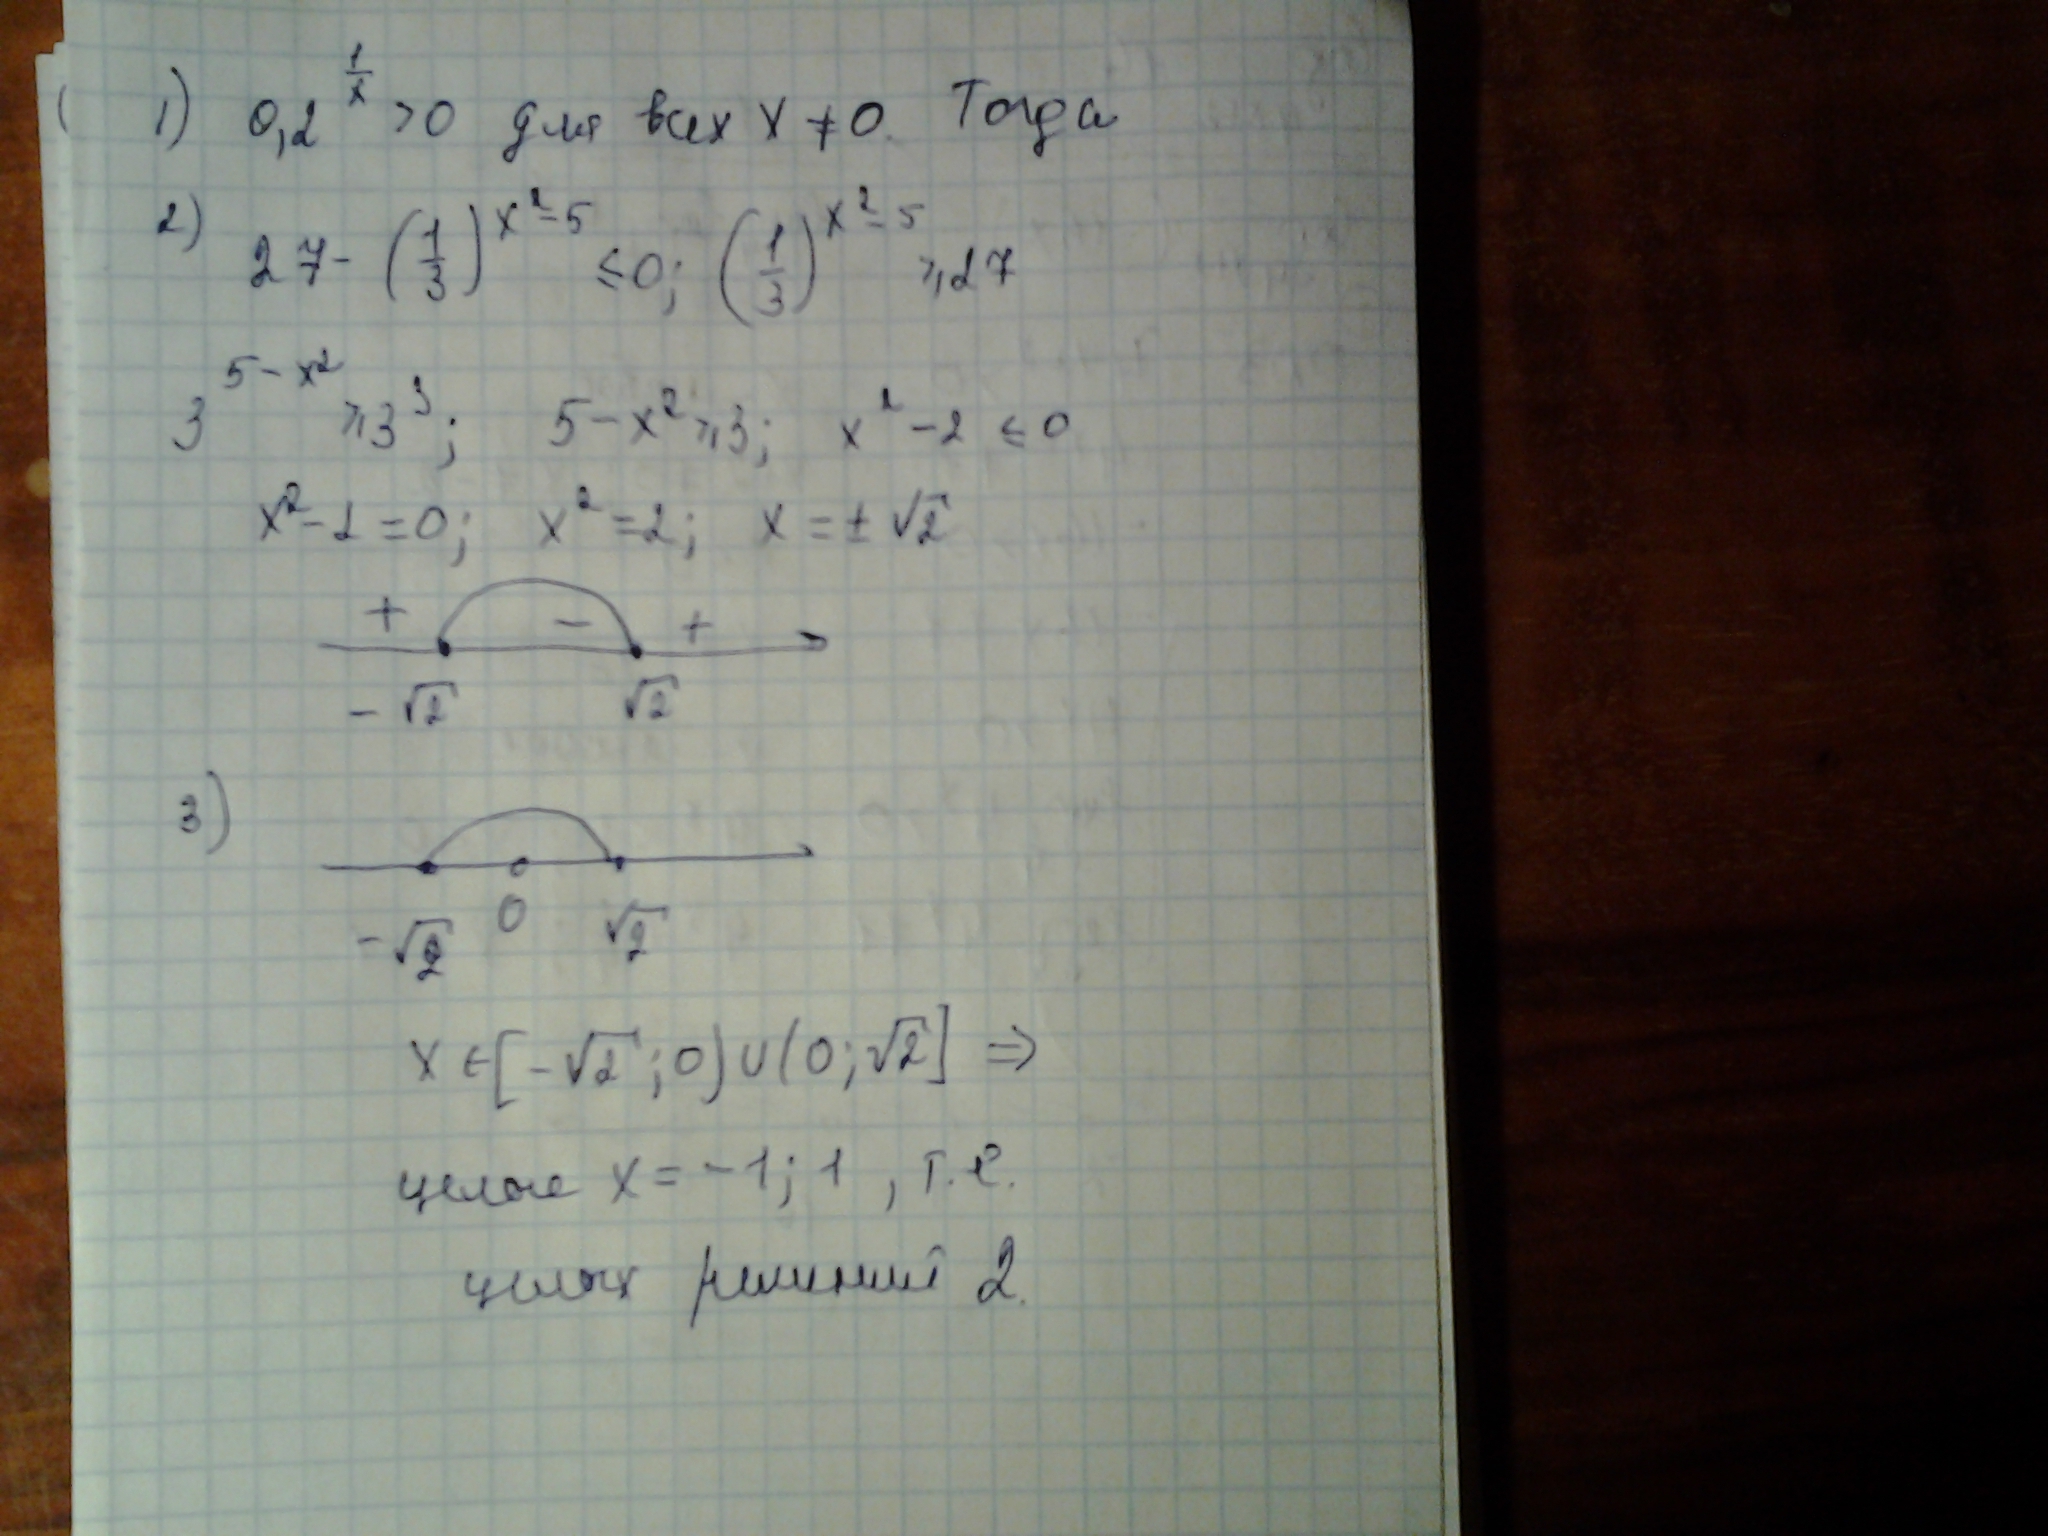 1) 0,2^(1/x) > 0 для всех x ≠ 0. Тогда
2) 27 - (1/3)^(x²-5) ≤ 0; (1/3)^(x²-5) ≥ 27
3^(5-x²) ≥ 3³; 5 - x² ≥ 3; x² - 2 ≤ 0
x² - 2 = 0; x² = 2; x = ± √2
+ - +
-√2 √2
3)
-√2 0 √2
x ∈ [-√2; 0) ∪ (0; √2] ⇒
целые x = -1; 1, т.е.
целых решений 2.